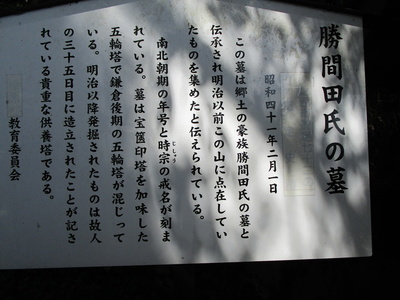 勝間田氏の墓
昭和四十一年二月一日
この墓は郷土の豪族勝間田氏の墓と
伝承され明治以前この山に点在してい
たものを集めたと伝えられている。
南北朝期の年号と時宗の戒名が刻ま
じしゅう
れている。墓は宝篋印塔を加味した
五輪塔で鎌倉後期の五輪塔が混じって
いる。明治以降発掘されたものは故人
の三十五日目に造立されたことが記さ
れている貴重な供養塔である。
教育委員会